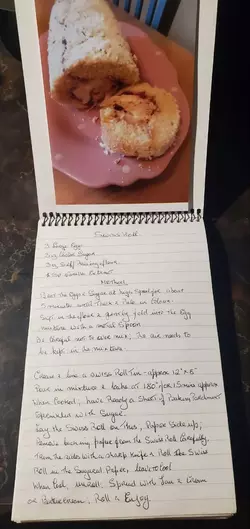 Swiss Roll
3 Large Eggs
3oz Caster Sugar
3oz Self Raising flour
Method
Beat the Eggs & Sugar at high Speed for about
5 minutes until Thick & Pale in Colour.
Sift in the flour & gently fold into the Egg
mixture with a metal Spoon
Be Careful not to over mix, The air needs to
be kept in the mixture
Grease & line a Swiss Roll Tin - approx 12" x 8"
Pour in mixture & bake at 180° for 15 mins approx
When Cooked, have Ready a Sheet of Baking Parchment
Sprinkled with Sugar.
Lay the Swiss Roll on this, Paper Side up,
Remove backing paper from the Swiss Roll Carefully,
Trim the sides with a sharp knife & Roll the Swiss
Roll in the Sugared Paper, leave to Cool
When Cool, unroll. Spread with Jam & Cream
or Buttercream, Roll & Enjoy